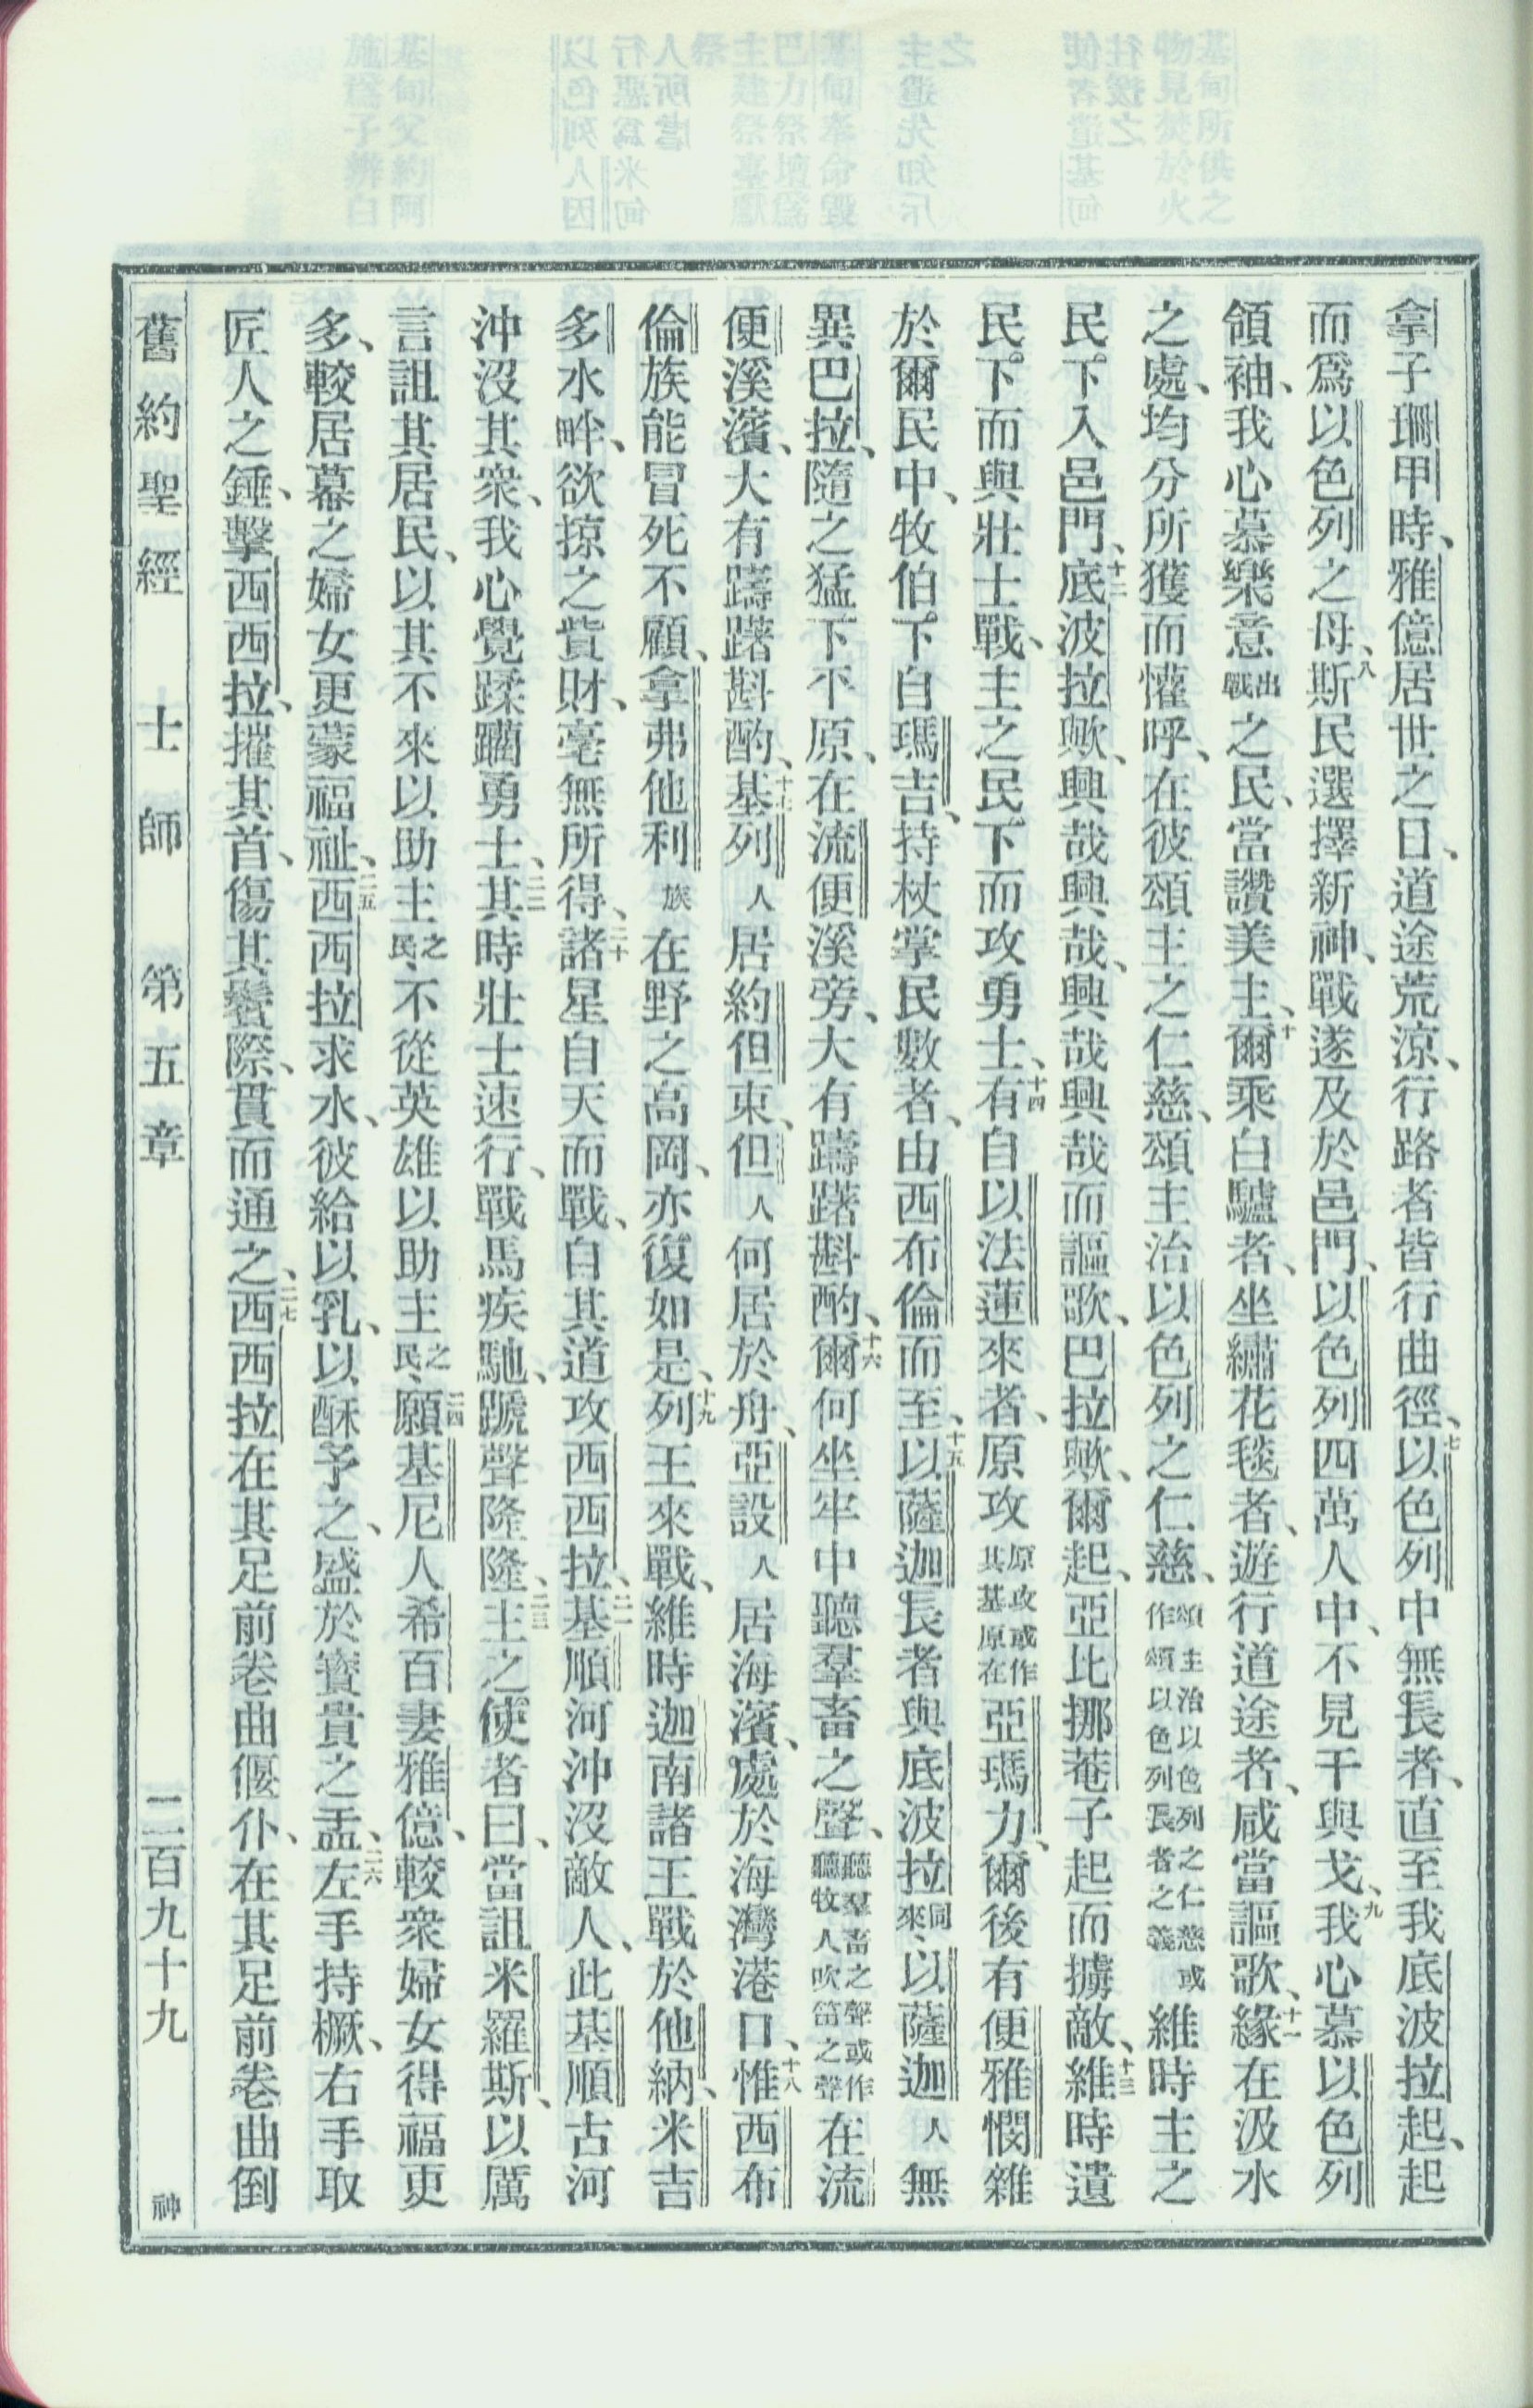 拿子珊甲時、雅億居世之日、道途荒涼、行路者皆行曲徑、七以色列中無長者、直至我底波拉起、起
而爲以色列之母、八斯民選擇新神、戰遂及於邑門、以色列四萬人中、不見干與戈、九我心慕以色列
領袖、我心慕樂意出戰之民、當讚美主、十爾乘白驢者、坐繡花毯者、遊行道途者、咸當謳歌、十一緣在汲水
之處、均分所獲而懽呼、在彼頌主之仁慈、頌主治以色列之仁慈、頌主治以色列之仁慈或作頌以色列長者之義維時主之
民下入邑門、十二底波拉歟、興哉興哉、興哉興哉而謳歌、巴拉歟、爾起、亞比挪菴子起而擄敵、十三維時遺
民下而與壯士戰、主之民下而攻勇士、十四有自以法蓮來者、原攻原攻或作其基原在亞瑪力、爾後有便雅憫雜
於爾民中、牧伯下自瑪吉、持杖掌民數者、由西布倫而至、十五以薩迦長者與底波拉同來、以薩迦人無
異巴拉、隨之猛下平原、在流便溪旁、大有躊躇斟酌、十六爾何坐牢中聽羣畜之聲、聽羣畜之聲或作聽牧人吹笛之聲在流
便溪濱、大有躊躇斟酌、十七基列人居約但東、但人何居於舟、亞設人居海濱、處於海灣港口、十八惟西布
倫族能冒死不顧、拿弗他利族在野之高岡、亦復如是、十九列王來戰、維時迦南諸王戰於他納、米吉
多水畔、欲掠之貲財、毫無所得、二十諸星自天而戰、自其道攻西西拉、二一基順河沖沒敵人、此基順古河
沖沒其衆、我心覺蹂躪勇士、二二其時壯士速行、戰馬疾馳、蹏聲隆隆、二三主之使者曰、當詛米羅斯、以厲
言詛其居民、以其不來以助主之民、不從英雄以助主之民、二四願基尼人希百妻雅億、較衆婦女得福更
多、較居幕之婦女更蒙福祉、二五西西拉求水、彼給以乳、以酥予之、盛於寶貴之盂、二六左手持橛、右手取
匠人之錘、擊西西拉、摧其首、傷其鬢際、貫而通之、二七西西拉在其足前卷曲偃仆、在其足前卷曲倒
舊約聖經 士師 第五章 二百九十九 神